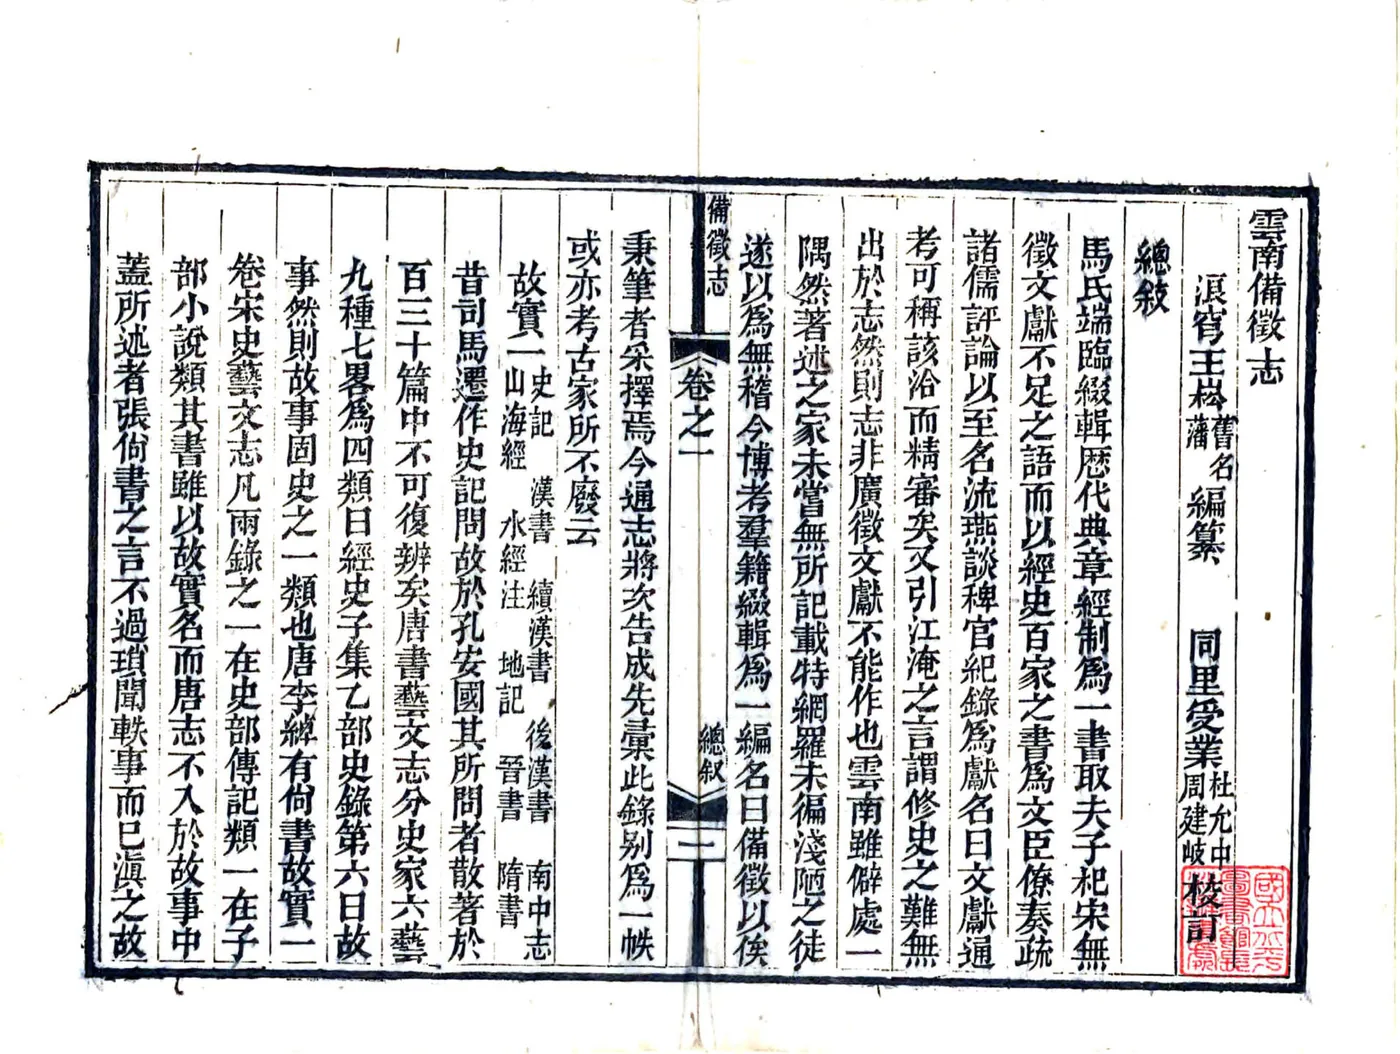 雲南備徵志
浪穹王崧舊名藩編纂 同里受業杜允中周建岐校訂
總敘
馬氏端臨綴輯歷代典章經制爲一書取夫子杞宋無
徵文獻不足之語而以經史百家之書爲文臣僚奏疏
諸儒評論以至名流燕談稗官紀錄爲獻名曰文獻通
考可稱該洽而精審矣又引江淹之言謂修史之難無
出於志然則志非廣徵文獻不能作也雲南雖僻處一
隅然著述之家未嘗無所記載特網羅未徧淺陋之徒
遂以爲無稽今博考羣籍綴輯爲一編名曰備徵以俟
備徵志 卷之一 總敘 一
秉筆者采擇焉今通志將次告成先彙此錄别爲一帙
或亦考古家所不廢云
故實一 史記 漢書 續漢書 後漢書 南中志
山海經 水經注 地記 晉書 隋書
昔司馬遷作史記問故於孔安國其所問者散著於
百三十篇中不可復辨矣唐書藝文志分史家六藝
九種七畧爲四類曰經史子集乙部史錄第六曰故
事然則故事固史之一類也唐李綽有尚書故實一
卷宋史藝文志凡兩錄之一在史部傳記類一在子
部小說類其書雖以故實名而唐志不入於故事中
蓋所述者張尙書之言不過瑣聞軼事而已滇之故